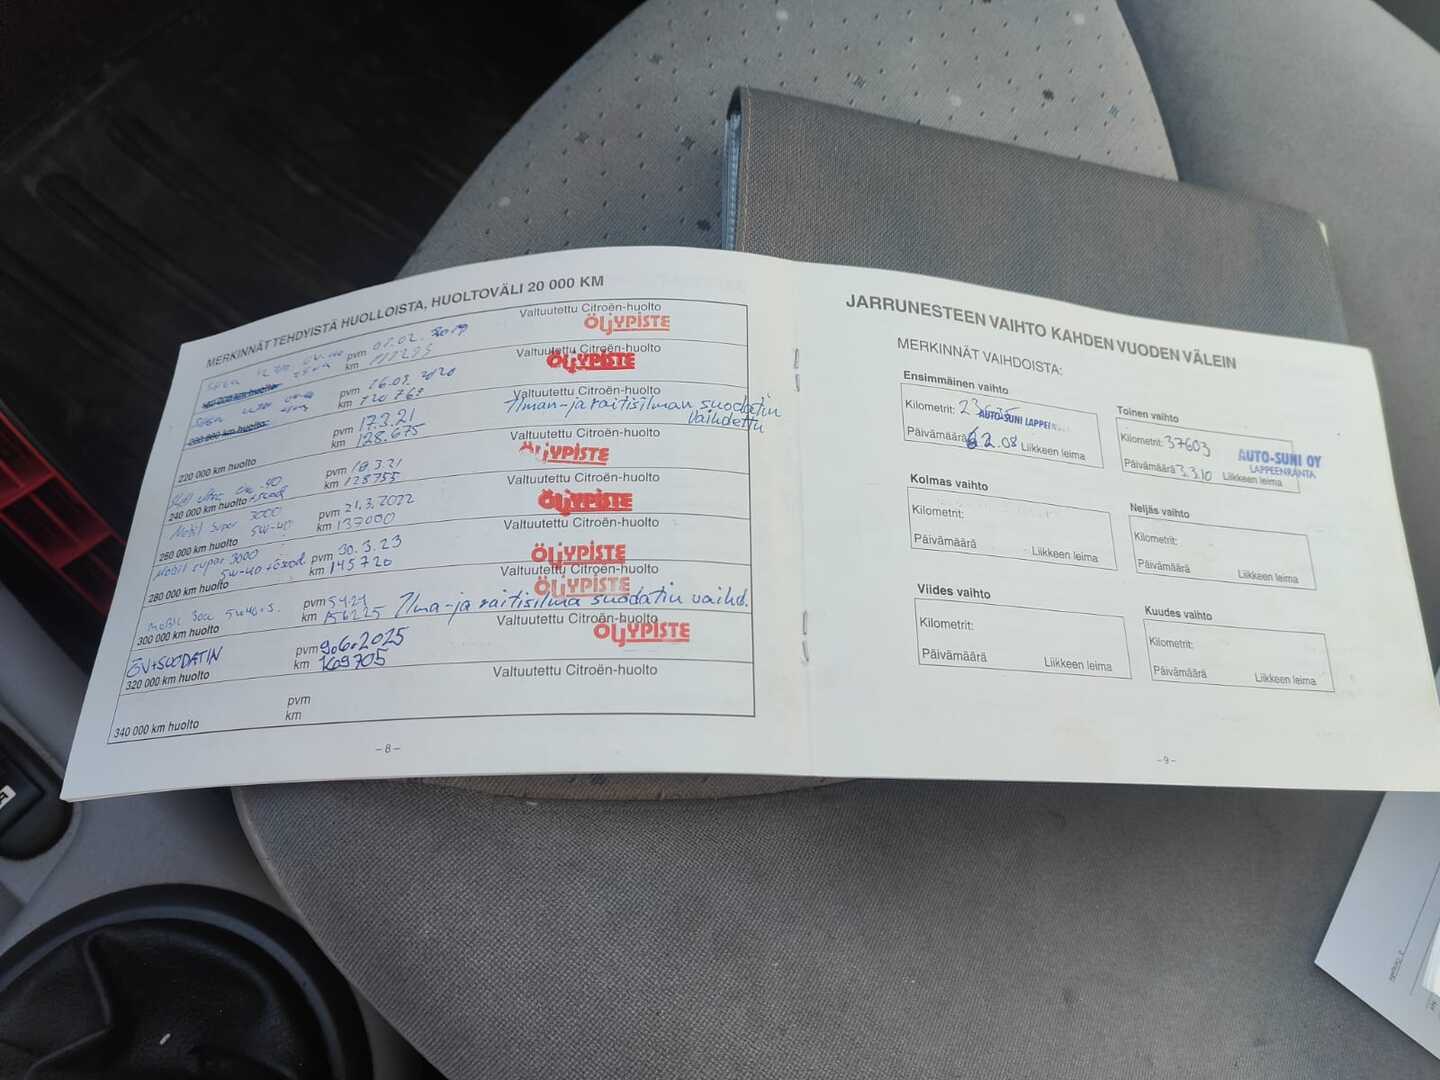 MERKINNÄT TEHDYISTÄ HUOLLOISTA, HUOLTOVÄLI 20 000 KM
pvm 01.02.2019
km 111295
Valtuutettu Citroën-huolto
ÖLJYPISTE
pvm 16.09.2020
km 120763
Valtuutettu Citroën-huolto
ÖLJYPISTE
200 000 km huolto
pvm 17.3.21
km 128.675
Valtuutettu Citroën-huolto
Ilman-ja raitisilman suodatin
vaihdettu
220 000 km huolto
pvm 18.3.21
km 128755
Valtuutettu Citroën-huolto
ÖLJYPISTE
240 000 km huolto
Mobil Super 3000
5W-40
pvm 21.3.2022
km 137000
Valtuutettu Citroën-huolto
ÖLJYPISTE
260 000 km huolto
Mobil super 3000
5W-40 + ösuod.
pvm 30.3.23
km 145720
Valtuutettu Citroën-huolto
ÖLJYPISTE
280 000 km huolto
pvm
km 156225
Valtuutettu Citroën-huolto
ÖLJYPISTE
Ilma-ja raitisilma suodatin vaihd.
300 000 km huolto
ÖV+SUODATIN
pvm 9.6.2025
km 169705
Valtuutettu Citroën-huolto
ÖLJYPISTE
320 000 km huolto
pvm
km
Valtuutettu Citroën-huolto
340 000 km huolto
– 8 –
JARRUNESTEEN VAIHTO KAHDEN VUODEN VÄLEIN
MERKINNÄT VAIHDOISTA:
Ensimmäinen vaihto
Kilometrit:
AUTO-SUNI
Päivämäärä 6.2.08 Liikkeen leima
Toinen vaihto
Kilometrit: 37603
AUTO-SUNI OY
LAPPEENRANTA
Päivämäärä 3.3.10 Liikkeen leima
Kolmas vaihto
Kilometrit:
Päivämäärä Liikkeen leima
Neljäs vaihto
Kilometrit:
Päivämäärä Liikkeen leima
Viides vaihto
Kilometrit:
Päivämäärä Liikkeen leima
Kuudes vaihto
Kilometrit:
Päivämäärä Liikkeen leima
– 9 –